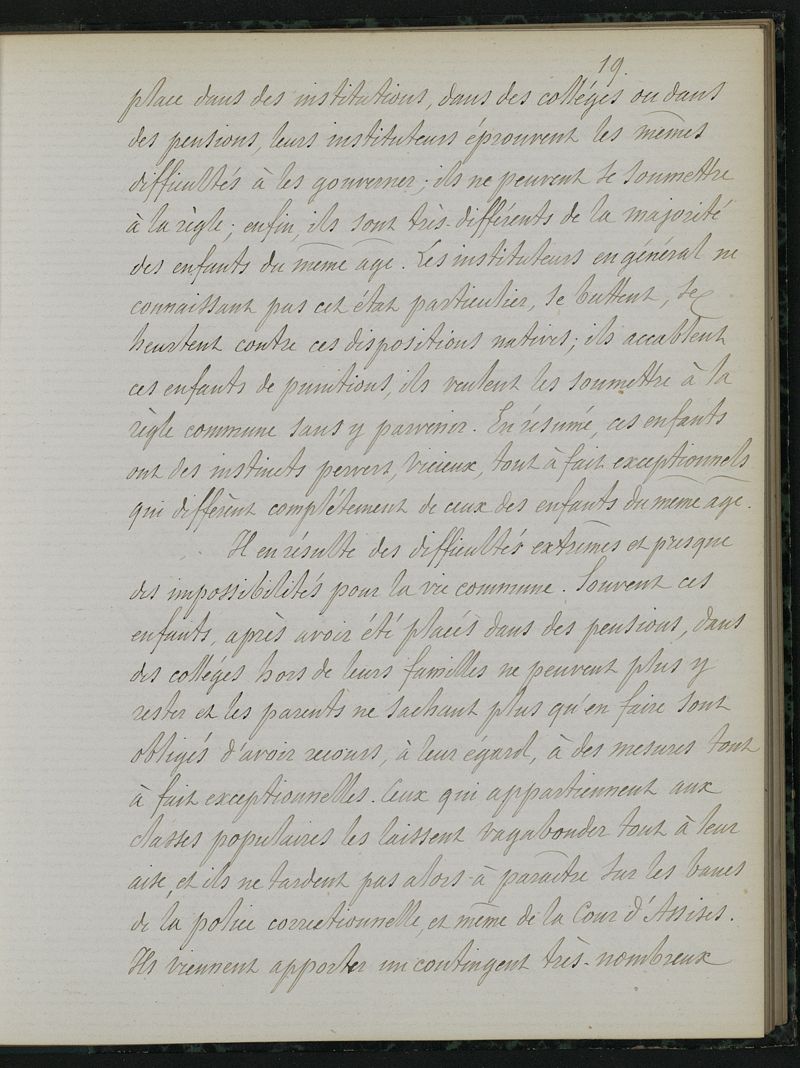 19.
place dans des institutions, dans des colléges ou dans
des pensions, leurs instituteurs éprouvent les mêmes
difficultés à les gouverner; ils ne peuvent se soumettre
à la règle; enfin, ils sont très-différents de la majorité
des enfants du même âge. Les instituteurs en général ne
connaissant pas cet état particulier, se buttent, se
heurtent contre ces dispositions natives; ils accablent
ces enfants de punitions, ils veulent les soumettre à la
règle commune sans y parvenir. En résumé, ces enfants
ont des instincts pervers, vicieux, tout à fait exceptionnels
qui diffèrent complétement de ceux des enfants du même âge.
Il en résulte des difficultés extrêmes et presque
des impossibilités pour la vie commune. Souvent ces
enfants, après avoir été placés dans des pensions, dans
des colléges hors de leurs familles ne peuvent plus y
rester et les parents ne sachant plus qu'en faire sont
obligés d'avoir recours, à leur égard, à des mesures tout
à fait exceptionnelles. Ceux qui appartiennent aux
classes populaires les laissent vagabonder tout à leur
aise, et ils ne tardent pas alors à paraître sur les bancs
de la police correctionnelle, et même de la Cour d'Assises.
Ils viennent apporter un contingent très-nombreux